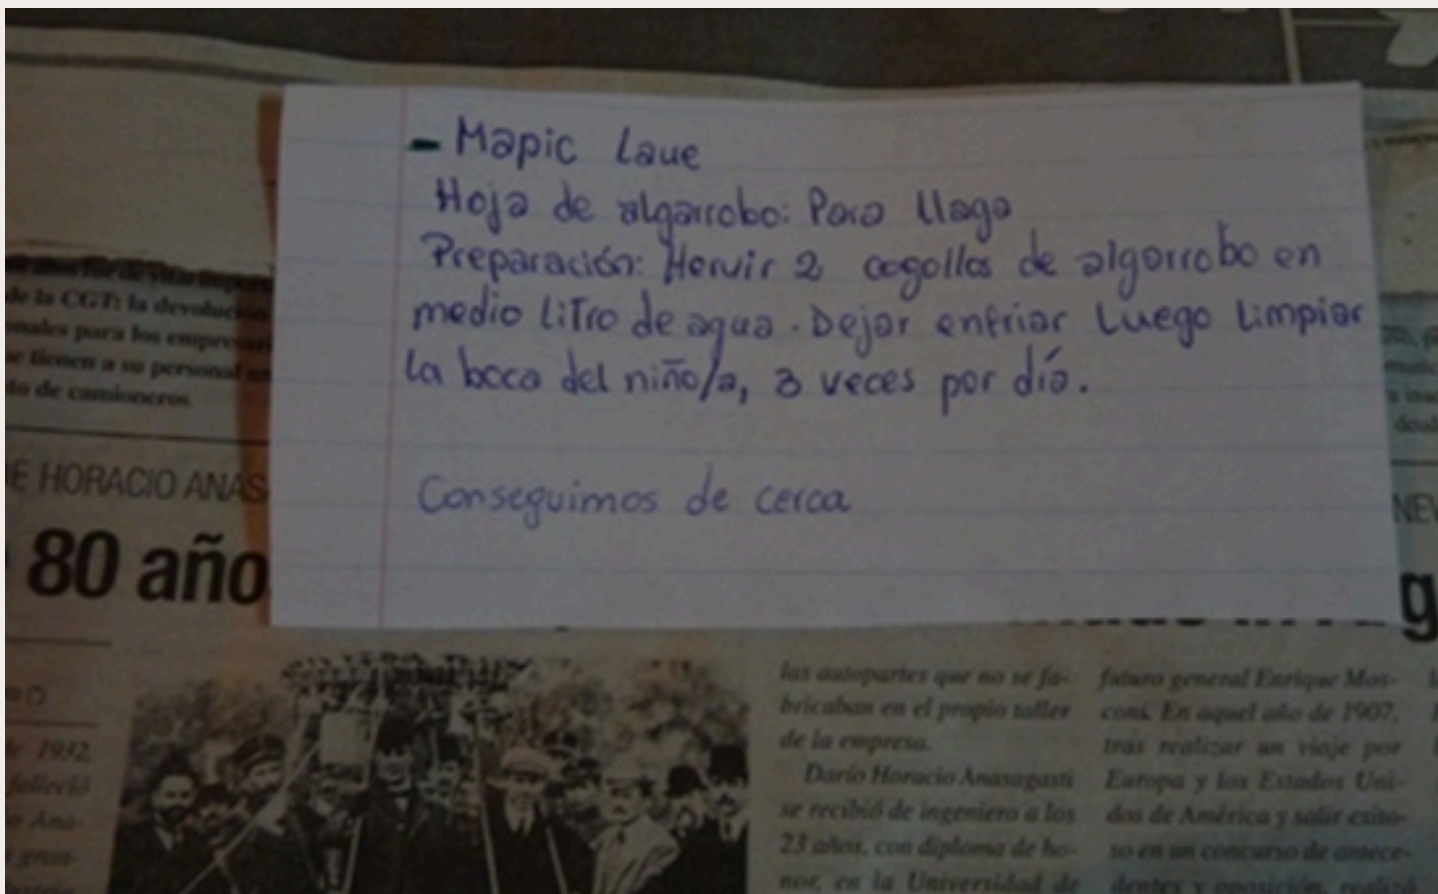 - Mapic Laue
Hoja de algarrobo: Para llaga
Preparación: Hervir 2 cogollos de algarrobo en
medio litro de agua. Dejar enfriar Luego limpiar
la boca del niño/a, 3 veces por día.
Conseguimos de cerca
de la CGT: la devolución
para los empresari
e tienen a su personal
to de camioneros.
E HORACIO ANAS
80 año
de 1932,
falleció
las autopartes que no se fa-
bricaban en el propio taller
de la empresa.
Darío Horacio Anasagasti
se recibió de ingeniero a los
23 años, con diploma de ho-
nor, en la Universidad de
futuro general Enrique Mos-
coni. En aquel año de 1907,
tras realizar un viaje por
Europa y los Estados Uni-
dos de América y salir exito-
so en un concurso de antece-
dentes y oposición
NEV
g